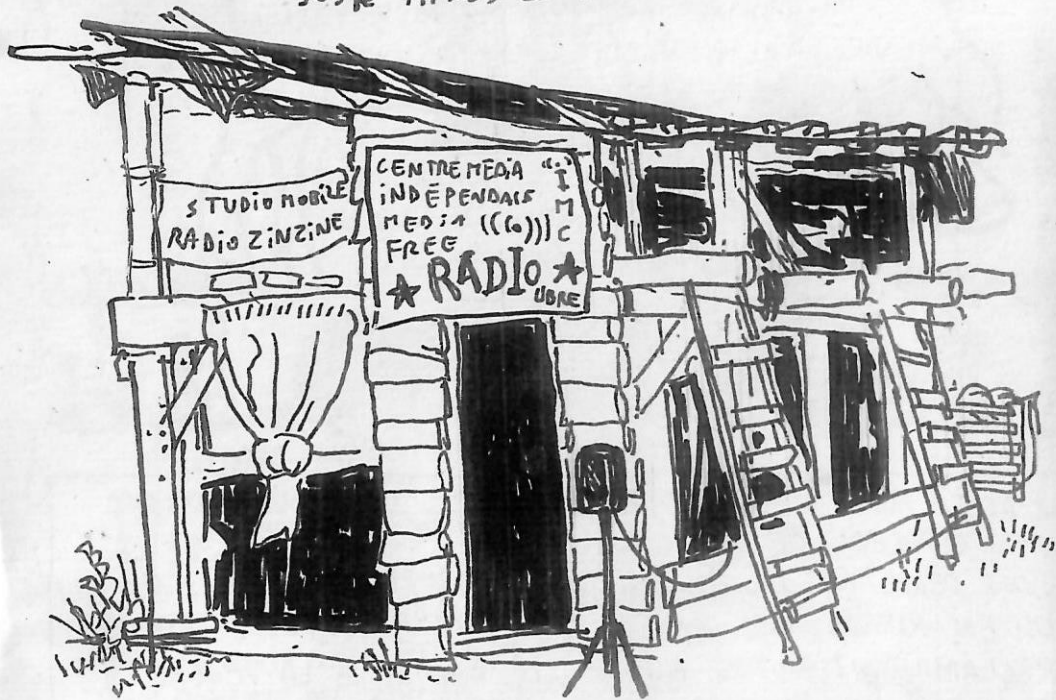 STUDIO MOBILE
RADIO ZINZINE
CENTRE MEDIA
INDÉPENDANS
MEDIA (((o)))
FREE
IMC
★ RADIO ★
LIBRE